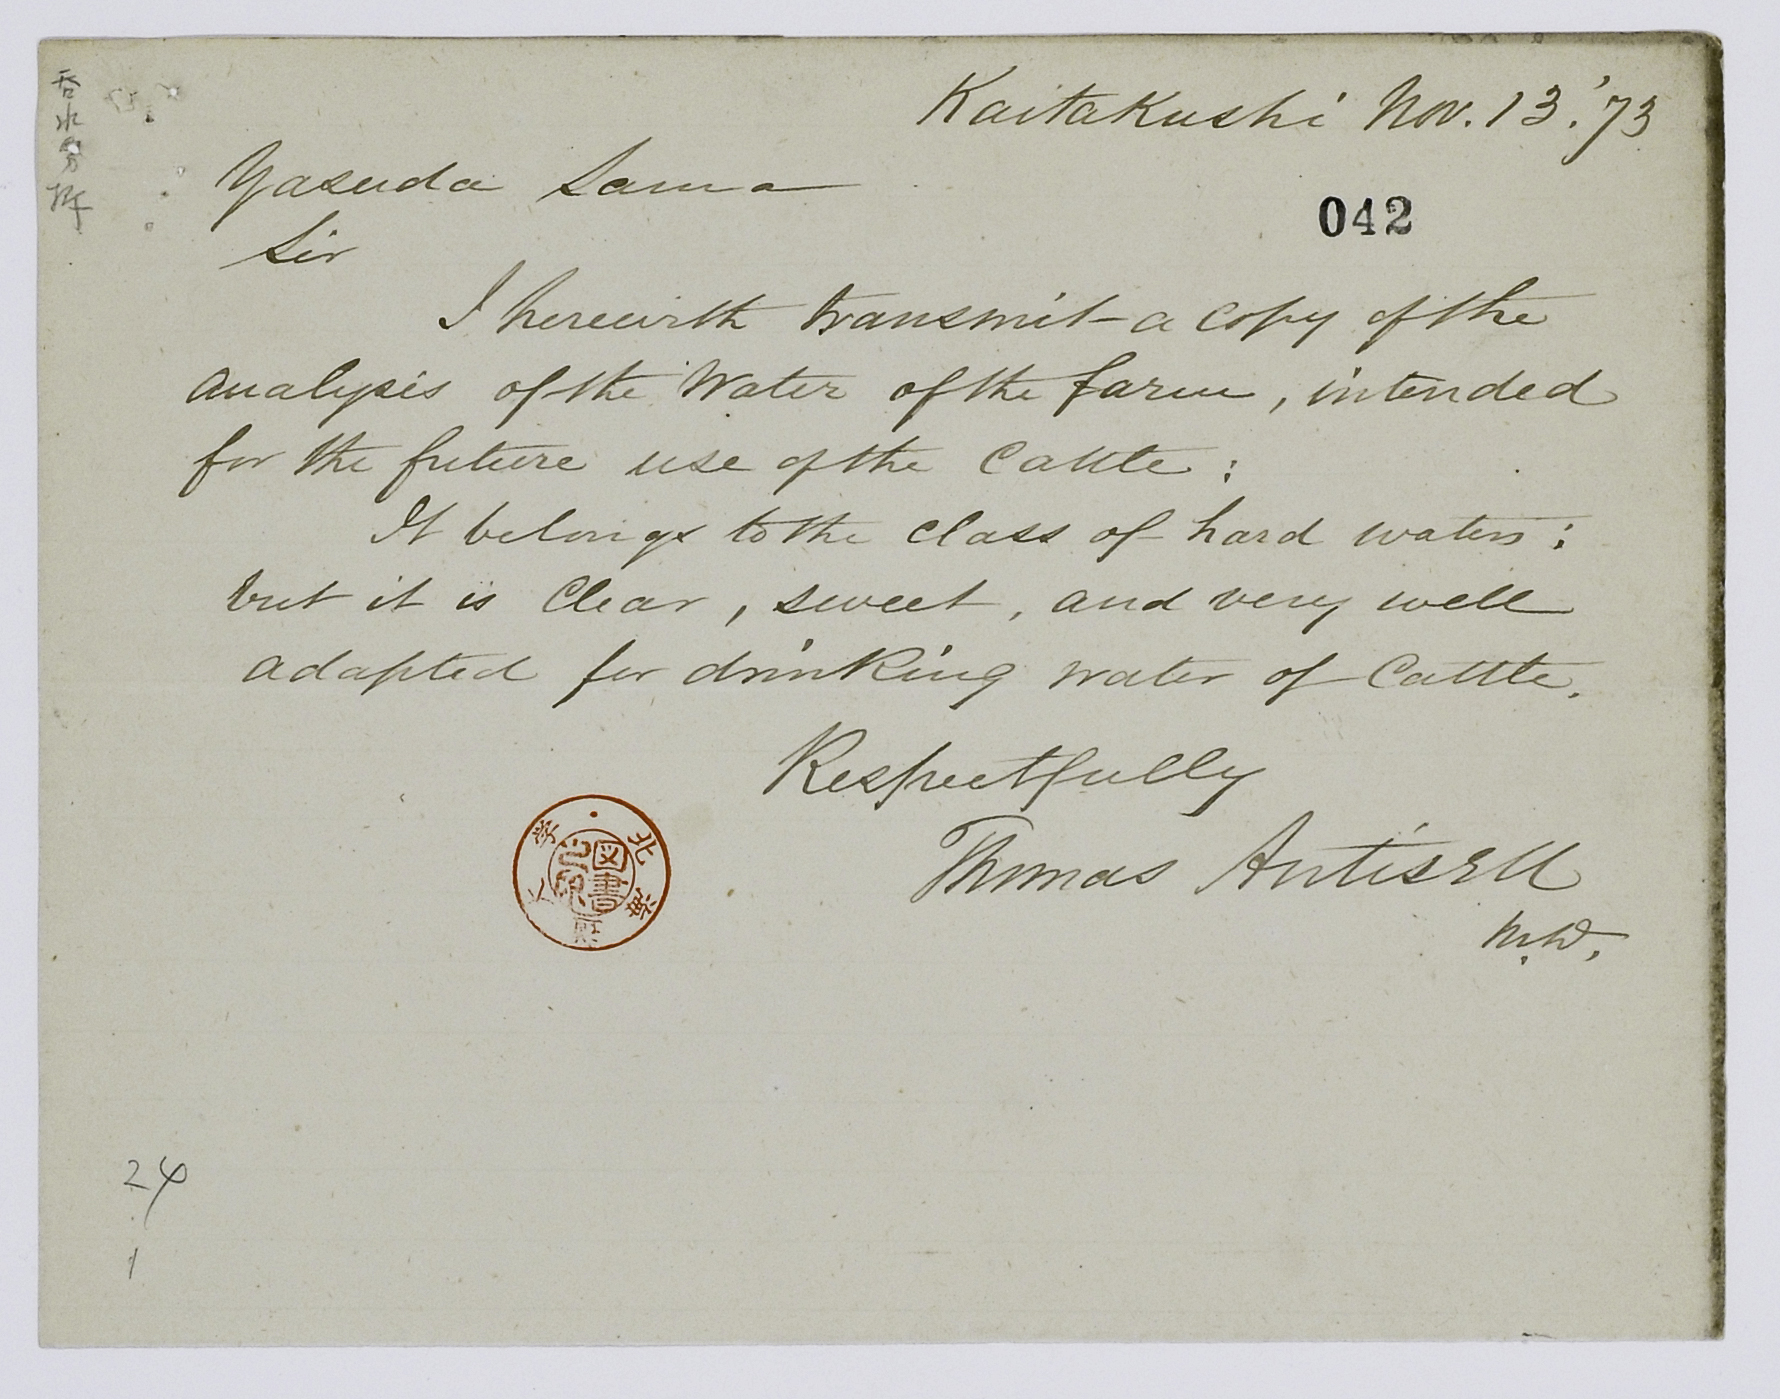 Kaitakushi Nov. 13. '73
Yasuda Sama
042
Sir
I herewith transmit a copy of the
analysis of the Water of the farm, intended
for the future use of the Cattle:
It belongs to the class of hard waters:
but it is Clear, sweet, and very well
adapted for drinking water of Cattle.
Respectfully
Thomas Antisell
M.D.
北 学
図書
24
1